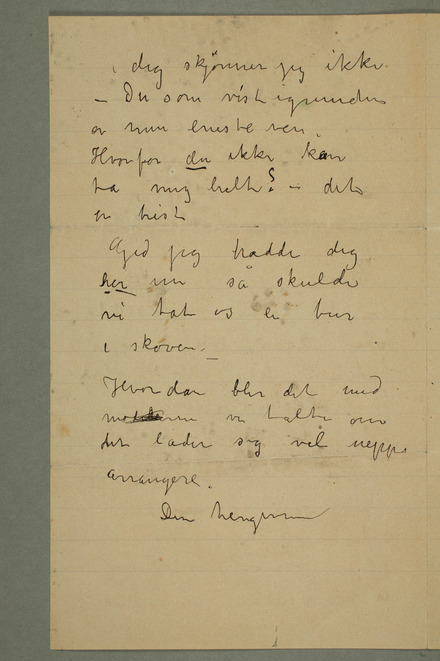 i dig skjönner jeg ikke
– Du som vist igrunden
er min eneste ven.
Hvorfor du ikke kan
ta mig helt? – det
er trist
Gid jeg hadde dig
her nu så skulde
vi tat os en tur
i skoven. –
Hvordan blir det med
vi talte om
det lader sig vel neppe
arrangere.
Din hengivne